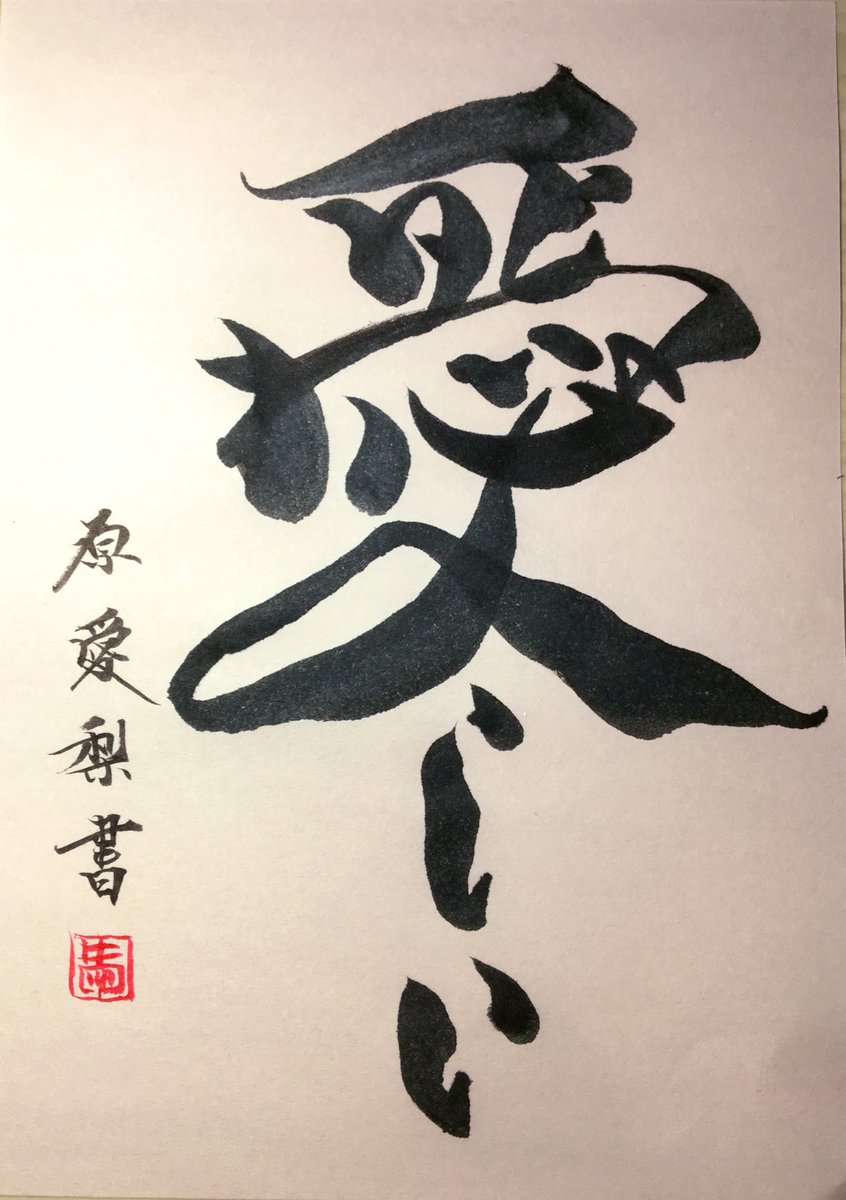 愛しい
原愛梨書